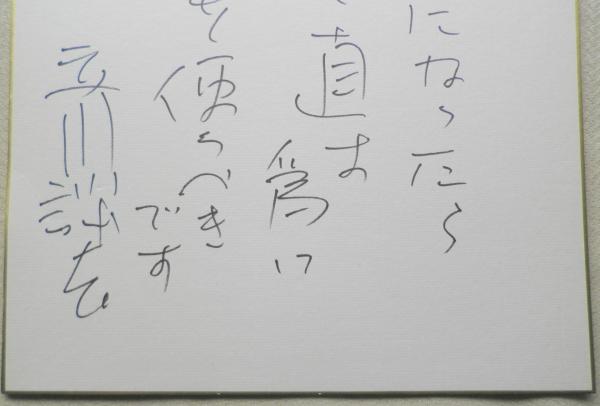 になったら
直す
爲に
使うべき
です
立川談志